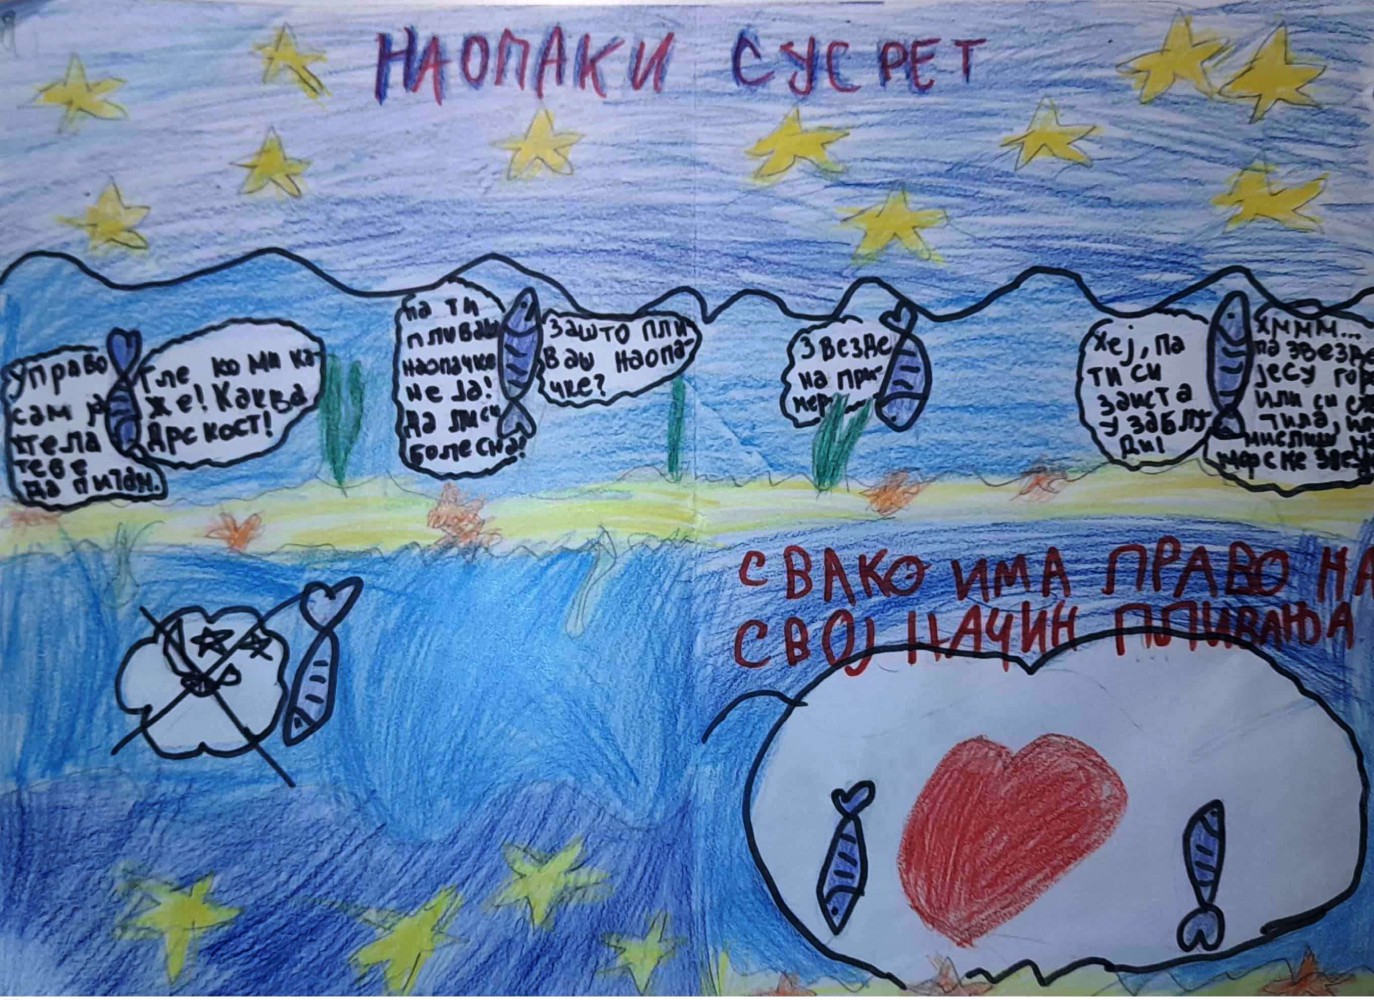 НАОПАКИ СУСРЕТ
Управо
сам ја
хтела
тебе
да питам.
Гле ко ми ка-
же! Каква
дрскост!
Па ти
пливаш
наопачке
не ја!
Да ли си
болесна?
Зашто пли
ваш наопа-
чке?
Звезде
на при-
мер
Хеј, па
ти си
заиста
у заблу
ди!
Хммм...
па звезде
јесу гор
или си
тила, или
мислиш на
морске звез
СВАКО ИМА ПРАВО НА
СВОЈ НАЧИН ПЛИВАЊА